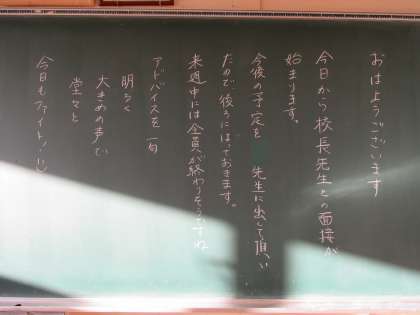 おはようございます
今日から校長先生との面接が
始まります。
今後の予定を　先生に出して頂い
たので後ろにはっておきます。
来週中には全員が終わりそうですね
アドバイスを一句
明るく
大きめの声で
堂々と
今日もファイト！